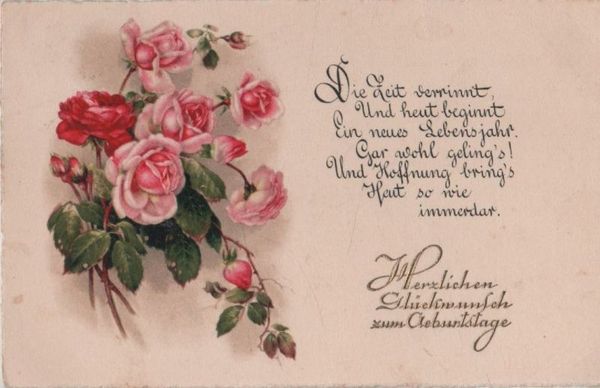 Die Zeit verrinnt,
Und heut beginnt
Ein neues Lebensjahr.
Gar wohl geling's!
Und Hoffnung bring's
Heut so wie
immerdar.
Herzlichen
Glückwunsch
zum Geburtstage